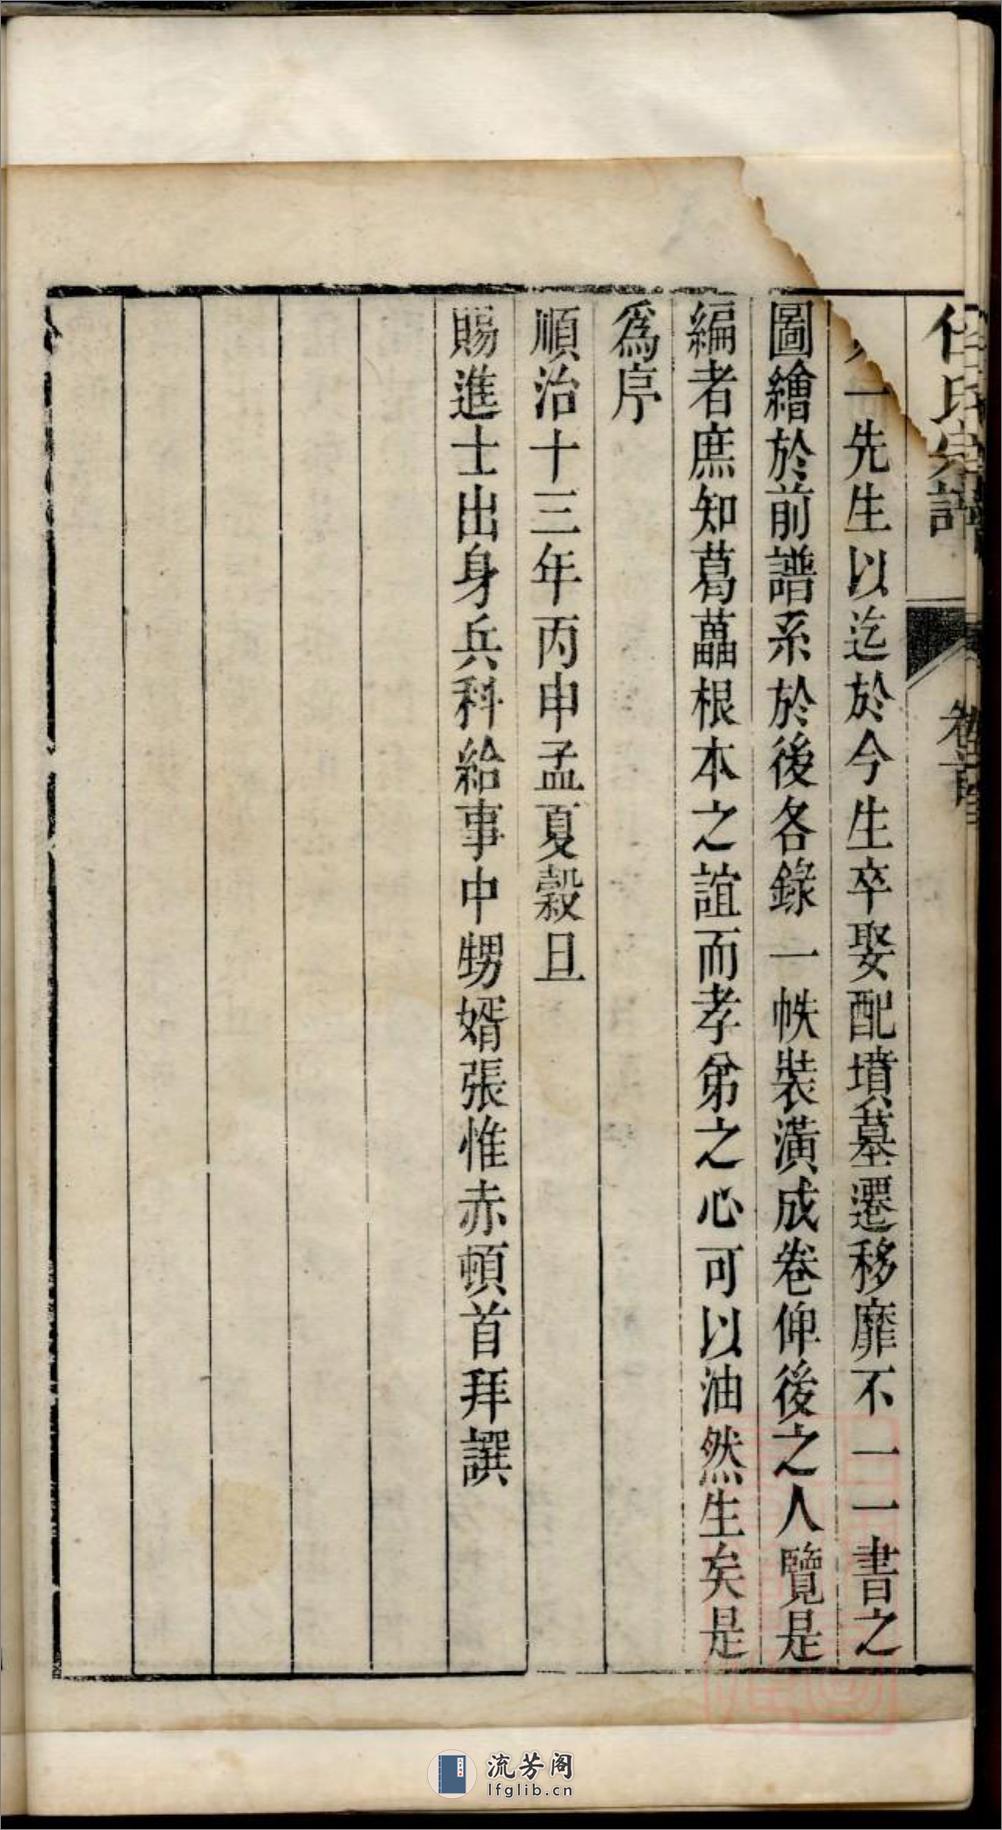 任氏宗譜
卷首
一先生以迄於今生卒娶配墳墓遷移靡不一一書之
圖繪於前譜系於後各錄一帙裝潢成卷俾後之人覽是
編者庶知葛藟根本之誼而孝弟之心可以油然生矣是
爲序
順治十三年丙申孟夏穀旦
賜進士出身兵科給事中甥婿張惟赤頓首拜譔
流芳阁
lfglib.cn